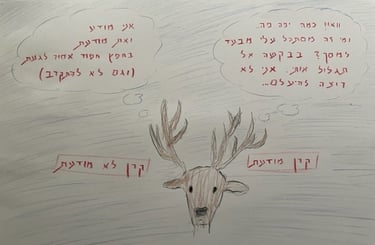 וואו כמה יפה פה.
ומי זה מסתכל עלי מבעד
למסך? בבקשה אל
תגלול אותי. אני לא
רוצה להיעלם...
אני מודע
ואת מודעת
בחפץ חמוד אסור לגעת
(וגם לא להתקרב)
קרן מודעת
קרן לא מודעת